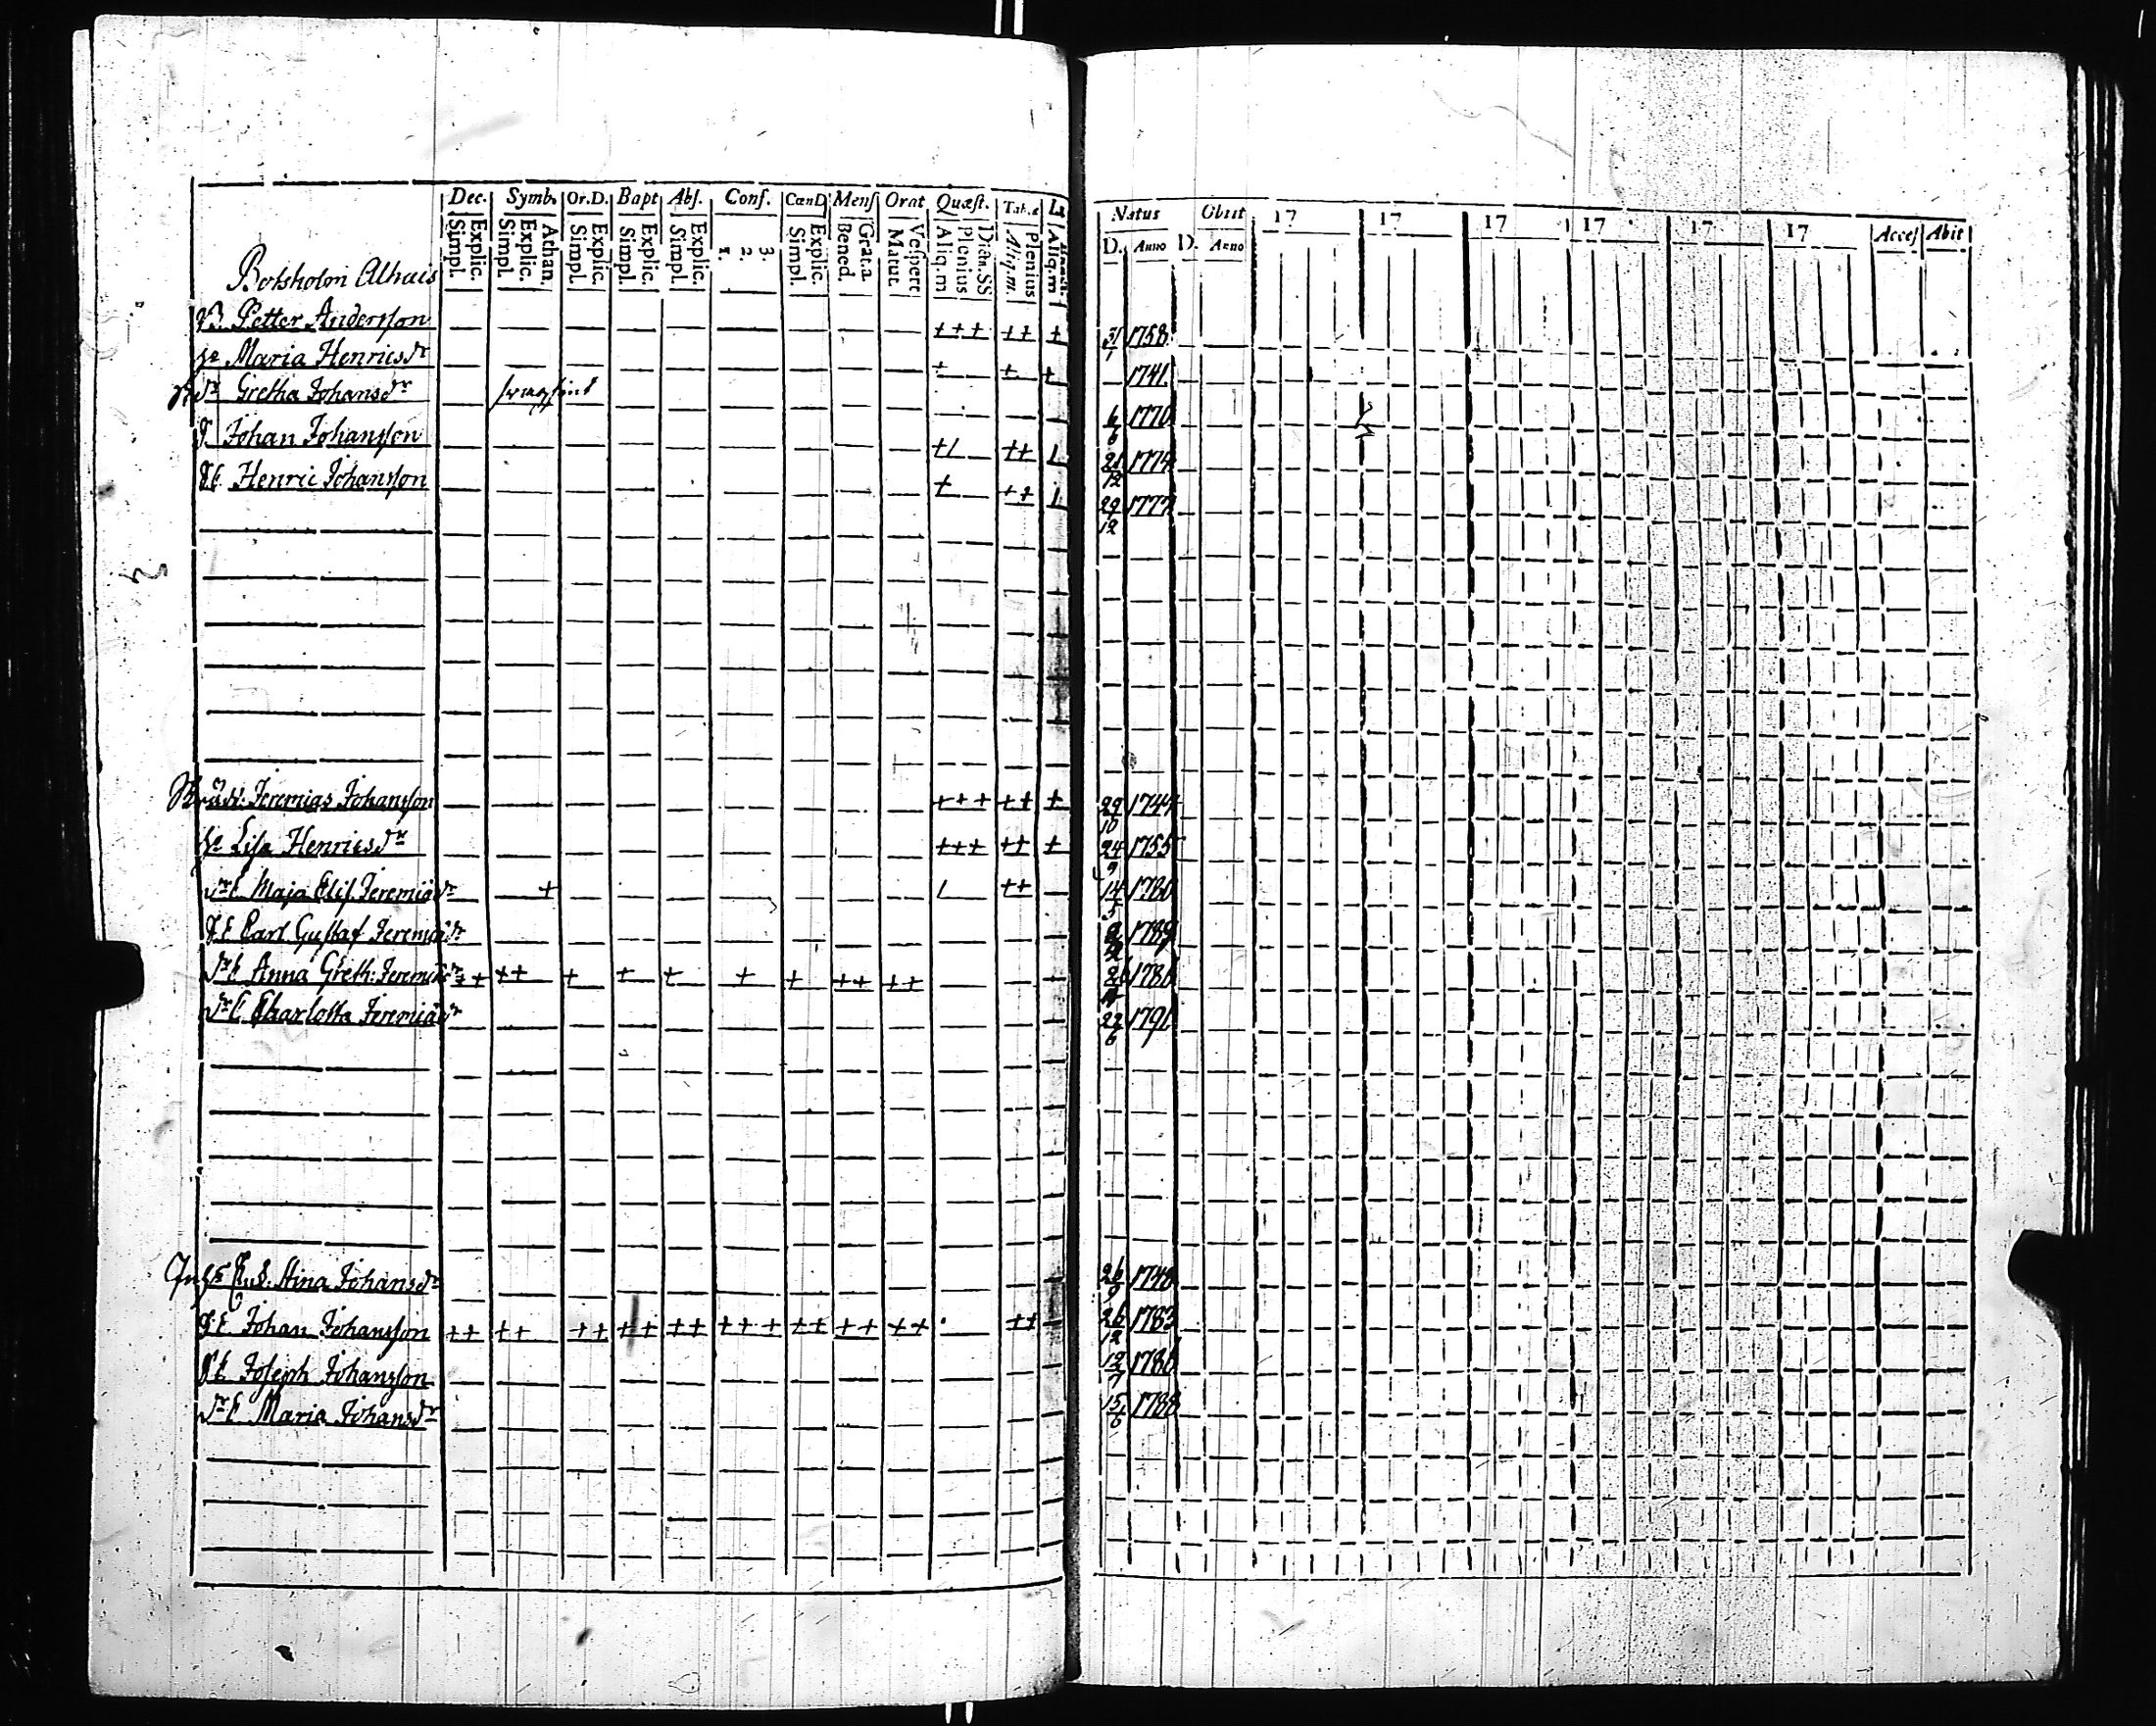 Dec. Symb. Or.D. Bapt Abſ. Conf. CœnD Menſ Orat Quæſt. Tab.æ
Explic. Simpl. Athan. Explic. Simpl. Explic. Simpl. Explic. Simpl. Explic. Simpl. 1. 2. 3. Explic. Simpl. Grat.a. Bened. Veſpere Matut. Dictn.SS Plenius Aliq.m Plenius Aliq.m. Aliq.m
Natus Obiit 17 17 17 17 17 17 Acceſ Abit
D. Anno D. Anno
B. Petter Andersson +++ ++ + 31/1 1758
H. Maria Henricsdr + + + 1741
dr Gretha Johansdr 6/6 1770
Johan Johansson ++ 21/12 1774
Henric Johansson + ++ 29/12 1777
Jeremias Johansson +++ ++ + 29/10 1744
Lisa Henricsdr +++ ++ + 24/9 1755
Maja Elis. Jeremiædr + ++ 14/5 1780
Carl Gustaf Jeremiæ 1789
Anna Greth: Jeremiædr ++ ++ + + + + + ++ ++ 1786
Charlotta Jeremiædr 22/6 1791
Stina Johansdr 26/9 1748
Johan Johansson ++ ++ ++ ++ ++ +++ ++ ++ ++ ++ 26/12 1783
Joseph Johansson 12/7 1786
Maria Johansdr 15/6 1788